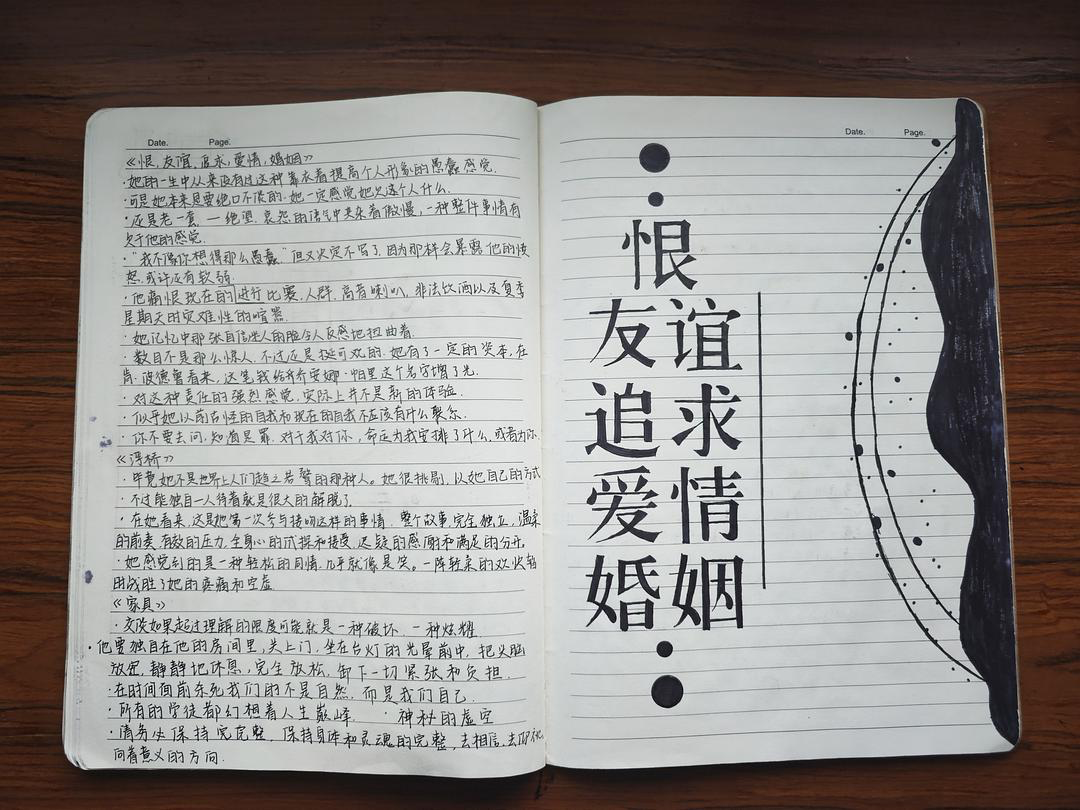 Date. Page.
《恨，友谊，追求，爱情，婚姻》
·她的一生中从来没有过这种靠衣着提高个人形象的愚蠢感觉.
·可是她本来只要绝口不谈的.她一定感觉她欠这个人什么.
·还是老一套.—绝望.哀怨的语气中夹杂着傲慢，一种整件事情有
欠于他的感觉.
·“我不像你想得那么愚蠢.”但又决定不写了.因为那样会暴露他的愤
怒.或许还有软弱.
·他痛恨现在的进行比赛.人群.高音喇叭.非法饮酒以及夏季
星期天的灾难性的喧嚣.
·她记忆中那张自信坐人的脸令人反感地扭曲着.
·数目不是那么惊人.不过还是挺可观的.她有了一定的资本.在
肯.波德鲁看来，这笔钱给乔安娜·帕里这个名字增了光.
·对这种责任的强烈感觉，实际上并不是新的体验.
·似乎她以前古怪的自我和现在的自我不应该有什么联系.
·你不要去问.知道是罪.对于我对你，命运为我安排了什么.或者为你.
《浮桥》
·毕竟她不是世界上人们趋之若鹜的那种人。她很挑剔，以她自己的方式
·不过能独自一人待着就是很大的解脱了.
·在她看来，这是她第一次参与接吻这样的事情.整个故事完全独立，温柔
的前奏.有效的压力.全身心的试探和接受.迟疑的感谢和满足的分开.
·她感觉到的是一种轻松的同情.几乎就像是笑。一阵轻柔的欢快暂
时战胜了她的疼痛和空虚
《家具》
·交谈如果超过理解的限度可能就是一种破坏.一种炫耀
·他要独自在他的房间里，关上门，坐在台灯的光晕前中，把头脑
放空，静静地休息，完全放松，卸下一切紧张和负担.
·在时间面前杀死我们的不是自然，而是我们自己.
·所有的学徒都幻想着人生巅峰. ·神秘的虚空
·请务必保持完整.保持身体和灵魂的完整，去相信，去
向着意义的方向.
Date. Page.
恨
友谊
追求
爱情
婚姻